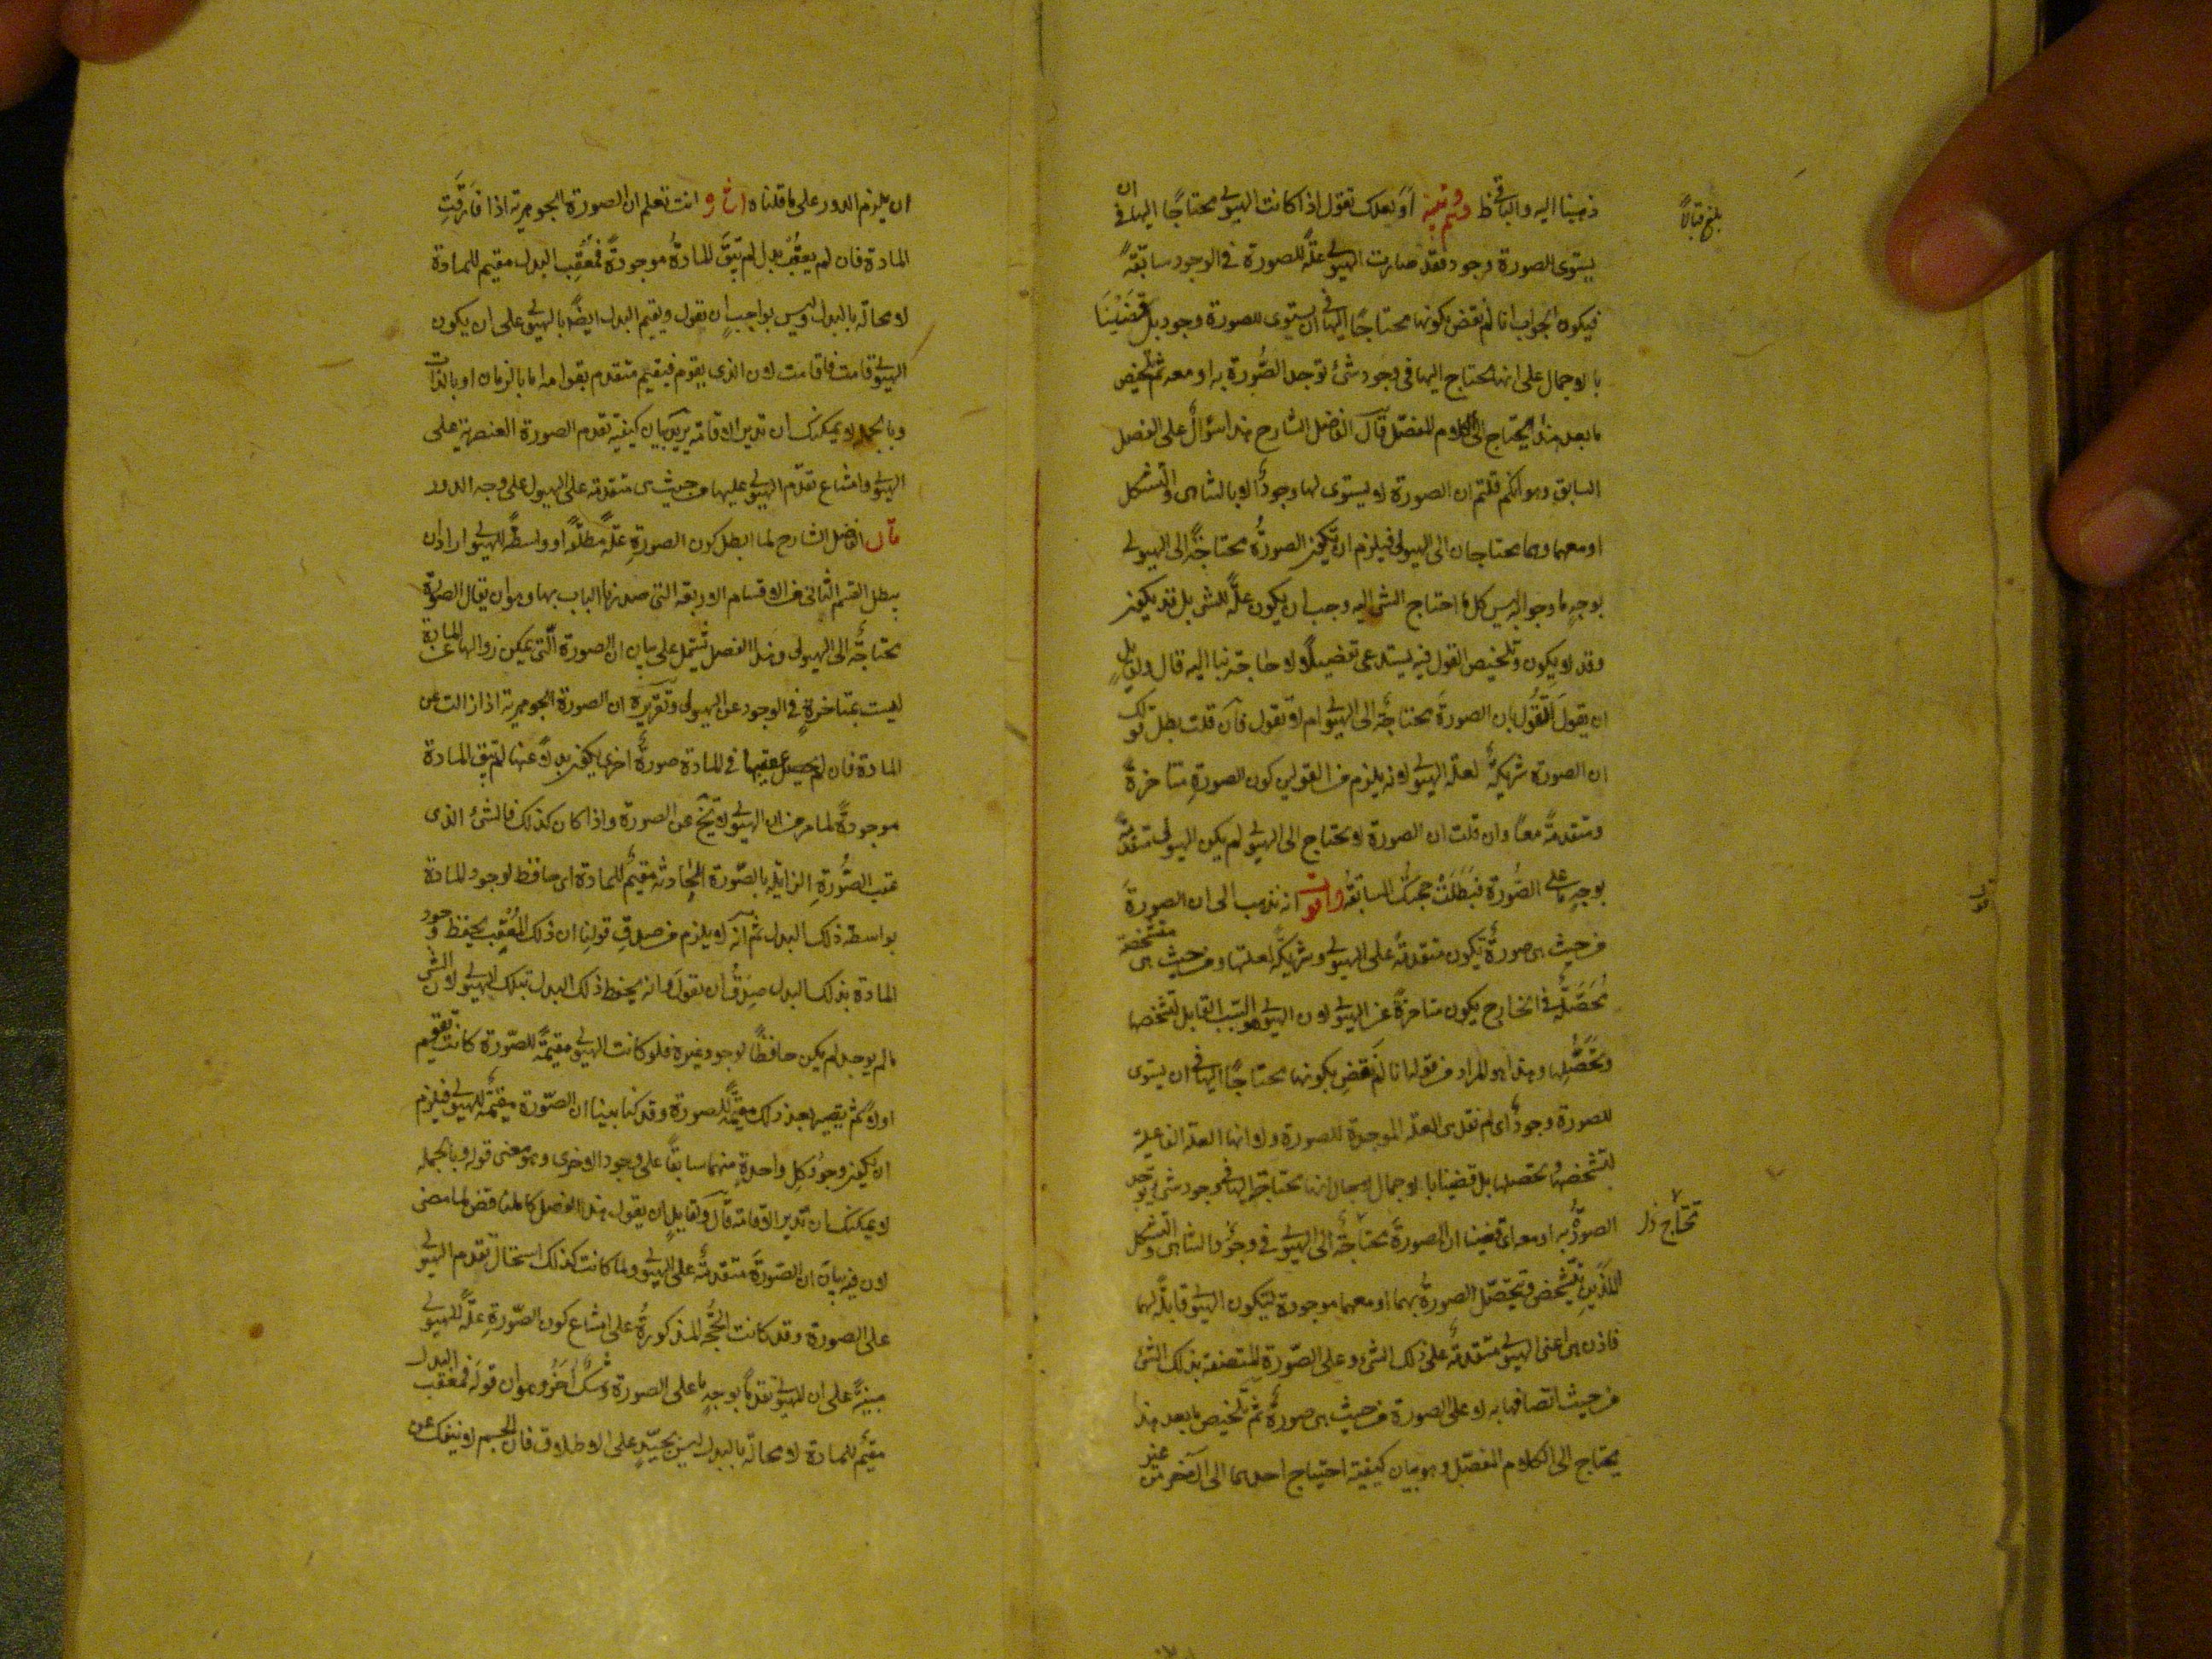 ذهبنا اليه والباقى ظ وهم وتنبيه او لعلك تقول اذا كانت الهيولى محتاجًا اليها فى ان
يستوى للصورة وجود فقد صارت الهيولى علةً للصورة فى الوجود سابقةً
فيكون الجواب انا لم نقض بكونها محتاجًا اليها فى ان يستوى للصورة وجود بل قضينا
بالاجمال على انها محتاج اليها فى وجود شئ توجد الصورة به او معه ثم تلخيص
ما بعد هذا يحتاج الى الكلام المفصّل قال الفاضل الشارح هذا سؤال على الفصل
السابق وهو انكم قلتم ان الصورة لا يستوى لها وجودٌ الا بالتناهى والتشكل
او معهما وهما محتاجان الى الهيولى فيلزم ان تكون الصورةُ محتاجةً الى الهيولى
بوجهٍ ما وجوابه ليس كل ما احتاج الشئ اليه وجب ان يكون علّةً للشئ بل قد يكون
وقد لا يكون وتلخيص القول فيه يستدعى تفصيلًا ولا حاجة بنا اليه قال ولقايلٍ
ان يقول اتقول بان الصورة محتاجة الى الهيولى ام لا تقول فان قلت بطل قولك
ان الصورة شريكةٌ لعلة الهيولى لانه يلزم من القولين كون الصورةِ متاخرةً
ومتقدمةً معًا وان قلت ان الصورة لا تحتاج الى الهيولى لم يكن الهيولى متقدمةً
بوجهٍ ما على الصورة فبطلت حجتك السابقة والجواب انه نذهب الى ان الصورة
من حيث هى صورةٌ تكون متقدمةً على الهيولى وشريكةً لعلتها ومن حيث هى مشخصة
محصّلةٌ فى الخارج يكون متاخرةً عن الهيولى لان الهيولى هو السبب القابل لتشخصها
وتحصّلها وهذا هو المراد من قوله انا لم نقض بكونها محتاجًا اليها فى ان يستوى
للصورة وجودٌ اى لم نقل هى العلة الموجدة للصورة ولا انها العلة الفاعلية
لتشخصها وتحصلها بل قضينا بالاجمال انها محتاج اليها فى وجود شئٍ يوجد
الصورةُ به او معه اى قضينا ان الصورة محتاجةٌ الى الهيولى فى وجود التناهى والتشكل
اللذين يتشخص ويتحصّل الصورةُ بهما او معهما موجودة لتكون الهيولى قابلةً لهما
فاذن هى اعنى الهيولى متقدمةٌ على ذلك الشئ وعلى الصورة المتصفة بذلك الشئ
من حيث اتصافها به لا على الصورة من حيث هى صورةٌ ثم تلخيص ما بعد هذا
يحتاج الى الكلام المفصّل وهو بيان كيفية احتياج احدهما الى الآخر من غير
بلغ قبالاً
ان يلزم الدور على ما قلناه انت تعلم ان الصورة الجوهرية اذا فارقت
المادة فان لم يعقُب بدل لم تبقَ المادةُ موجودةً فمُعقِب البدل مقيم للمادة
لا محالة بالبدل وليس بواجبٍ ان نقول ويقيم البدل ايضًا بالهيولى على ان يكون
الهيولى قامت فاقامت لان الذى يقوم فيقيم متقدم بقوامه اما بالزمان او بالذات
وبالجملة لا يمكنك ان تدير الاقامة يريد بيان كيفية تقدم الصورة العنصرية على
الهيولى وامتناع تقدّم الهيولى عليها من حيث هى متقدمة على الهيولى على وجه الدور
قال الفاضل الشارح لما ابطل كون الصورةِ علّةً مطلقةً او واسطةً للهيولى اراد ان
يبطل القسم الثانى من الاقسام الاربعة التى صدرنا الباب بها وهو ان يقال الصورة
محتاجةٌ الى الهيولى وهذا الفصل يشتمل على بيان ان الصورة الّتى يمكن زوالها عن المادة
ليست بمتاخرةٍ فى الوجود عن الهيولى وتقريره ان الصورة الجوهرية اذا زالت عن
المادة فان لم يحصل عقيبها فى المادة صورةٌ اخرى يكون بدلًا عنها لم تبق المادة
موجودةً لما مر من ان الهيولى لا تخ عن الصورة واذا كان كذلك فالشئ الذى
عقب الصورةِ الزايلة بالصورة الحادثة مقيمٌ للمادة اى حافظ لوجود المادة
بواسطة ذلك البدل ثم انه لا يلزم من صدق قولنا ان ذلك المُعقِب يحفظ وجود
المادة بذلك البدل صِدقُ ان نقول انه يحفظ ذلك البدل بتلك الهيولى لان الشئ
ما لم يوجد لم يكن حافظًا لوجود غيره فلو كانت الهيولى مقيمةً للصورة كانت تقوم
اولًا ثم يصير بعد ذلك مقيمةً للصورة وقد كنا بينا ان الصورة مقيمةٌ للهيولى فيلزم
ان يكون وجودُ كل واحدةٍ منهما سابقًا على وجود الاخرى وهو معنى قوله وبالجملة
لا يمكنك ان تدير الاقامة قال ولقايلٍ ان يقول هذا الفصل كالمناقض لما مضى
لان فيه بيان ان الصورة متقدمةٌ على الهيولى ولما كانت كذلك استحال تقدم الهيولى
على الصورة وقد كانت الحُجّة المذكورةُ على امتناع كون الصّورةِ علّةً للهيولى
مبنيةً على ان للهيولى تقدمًا بوجهٍ ما على الصورة وشكٌ آخرُ وهو ان قوله فمعقب البدل
مقيمٌ للمادة لا محالة بالبدل ليس بجيّدٍ على الاطلاق فان الجسم لا ينفك عن